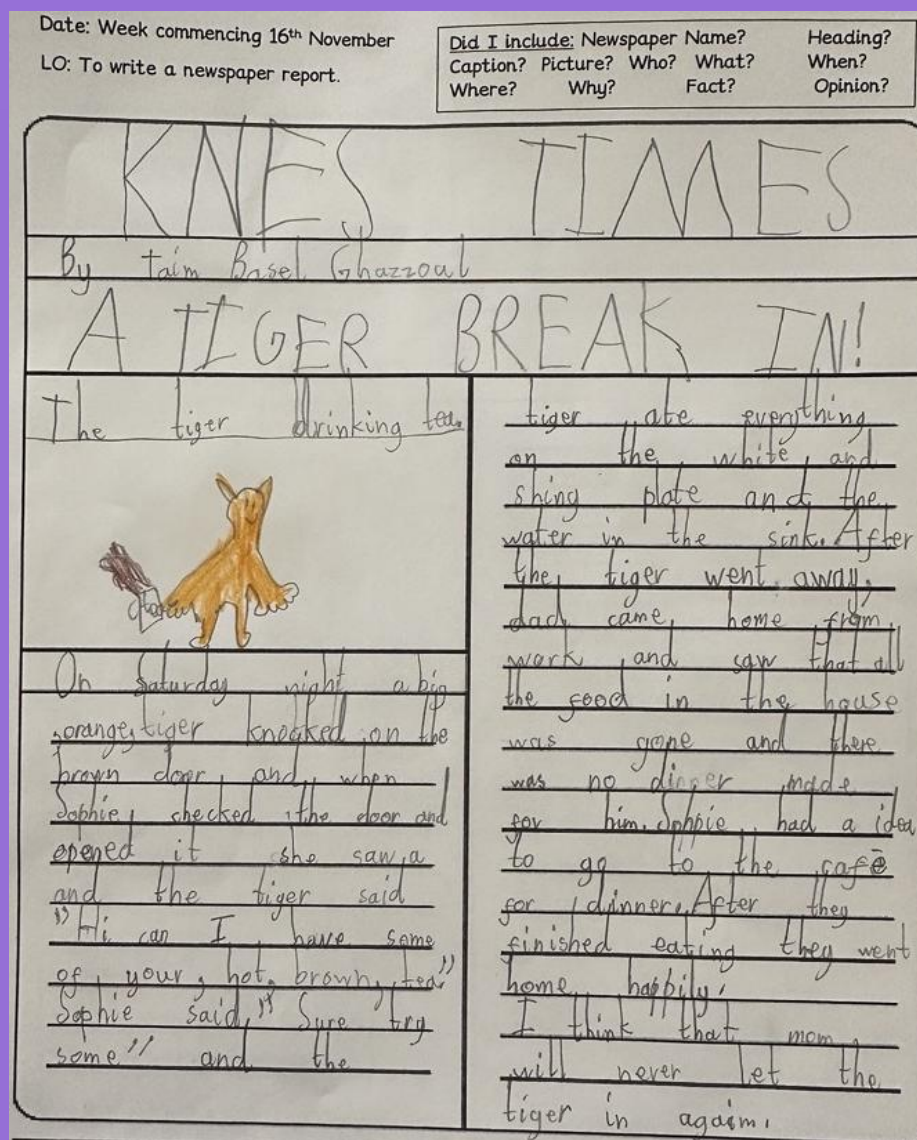 Date: Week commencing 16th November
LO: To write a newspaper report.
Did I include: Newspaper Name? Heading?
Caption? Picture? Who? What? When?
Where? Why? Fact? Opinion?
KNES TIMES
By taim Basel Ghazzoul
A TIGER BREAK IN!
The tiger drinking tea.
On Saturday night a big
orange, tiger knocked on the
brown door, and when
Sophie checked the door and
opened it she saw a
and the tiger said
"Hi can I have some
of your, hot, brown, tea"
Sophie said," Sure try
some" and the
tiger ate everything
on the white, and
shing plate and the
water in the sink. After
the tiger went away,
dad came home from
work and saw that all
the food in the house
was gone and there
was no dinner made
for him. Sophie had a idea
to go to the cafe
for dinner. After they
finished eating they went
home happily.
I think that mom
will never let the
tiger in again.